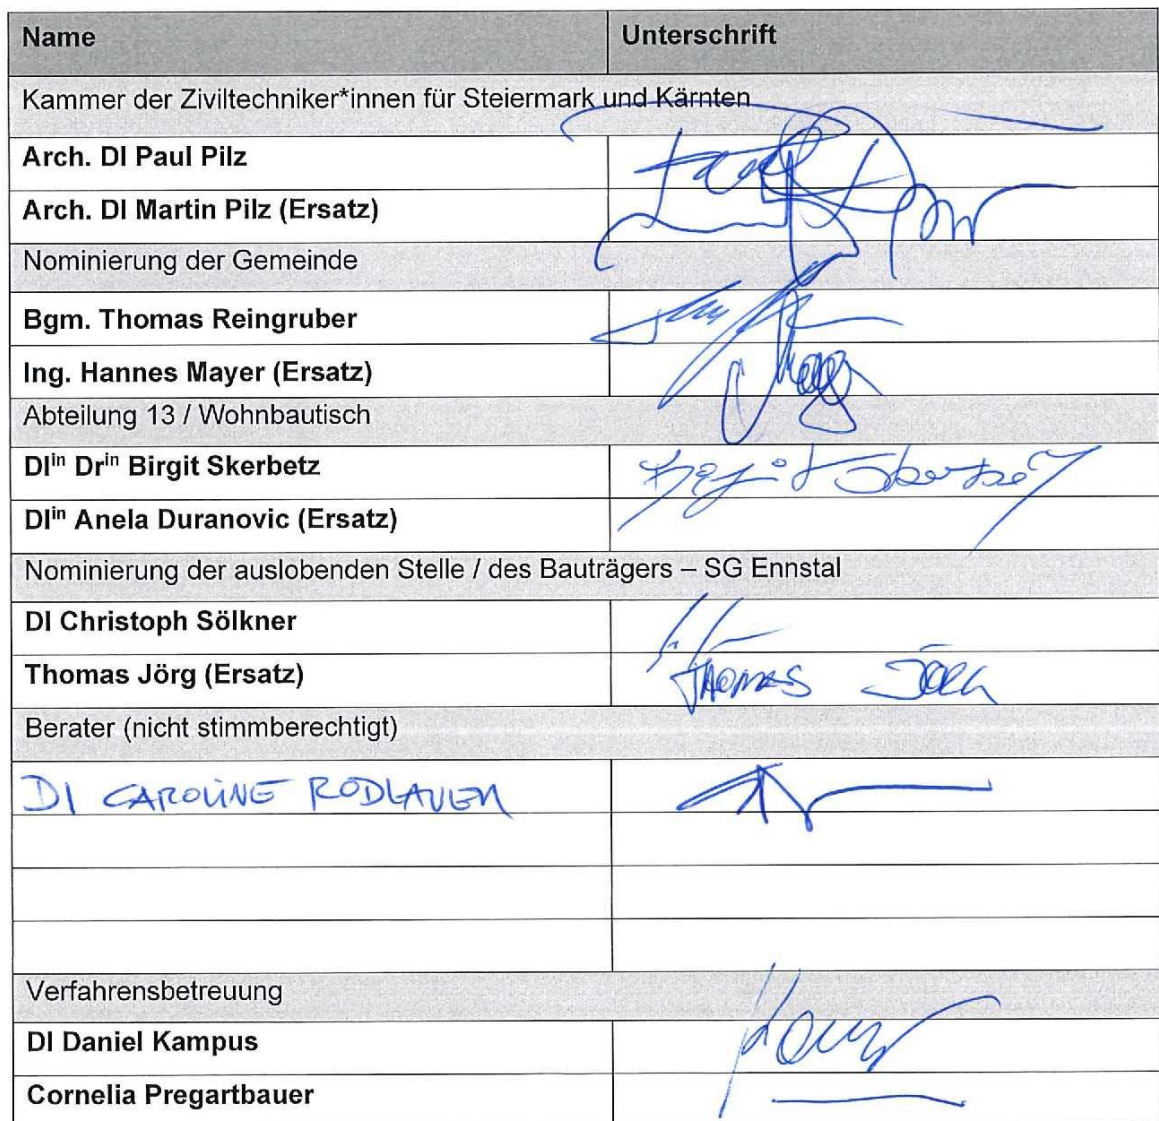 Name Unterschrift
Kammer der Ziviltechniker*innen für Steiermark und Kärnten
Arch. DI Paul Pilz
Arch. DI Martin Pilz (Ersatz)
Nominierung der Gemeinde
Bgm. Thomas Reingruber
Ing. Hannes Mayer (Ersatz)
Abteilung 13 / Wohnbautisch
DIⁱⁿ Drⁱⁿ Birgit Skerbetz
DIⁱⁿ Anela Duranovic (Ersatz)
Nominierung der auslobenden Stelle / des Bauträgers – SG Ennstal
DI Christoph Sölkner
Thomas Jörg (Ersatz) THOMAS
Berater (nicht stimmberechtigt)
DI CAROLINE RODLAUER
Verfahrensbetreuung
DI Daniel Kampus
Cornelia Pregartbauer